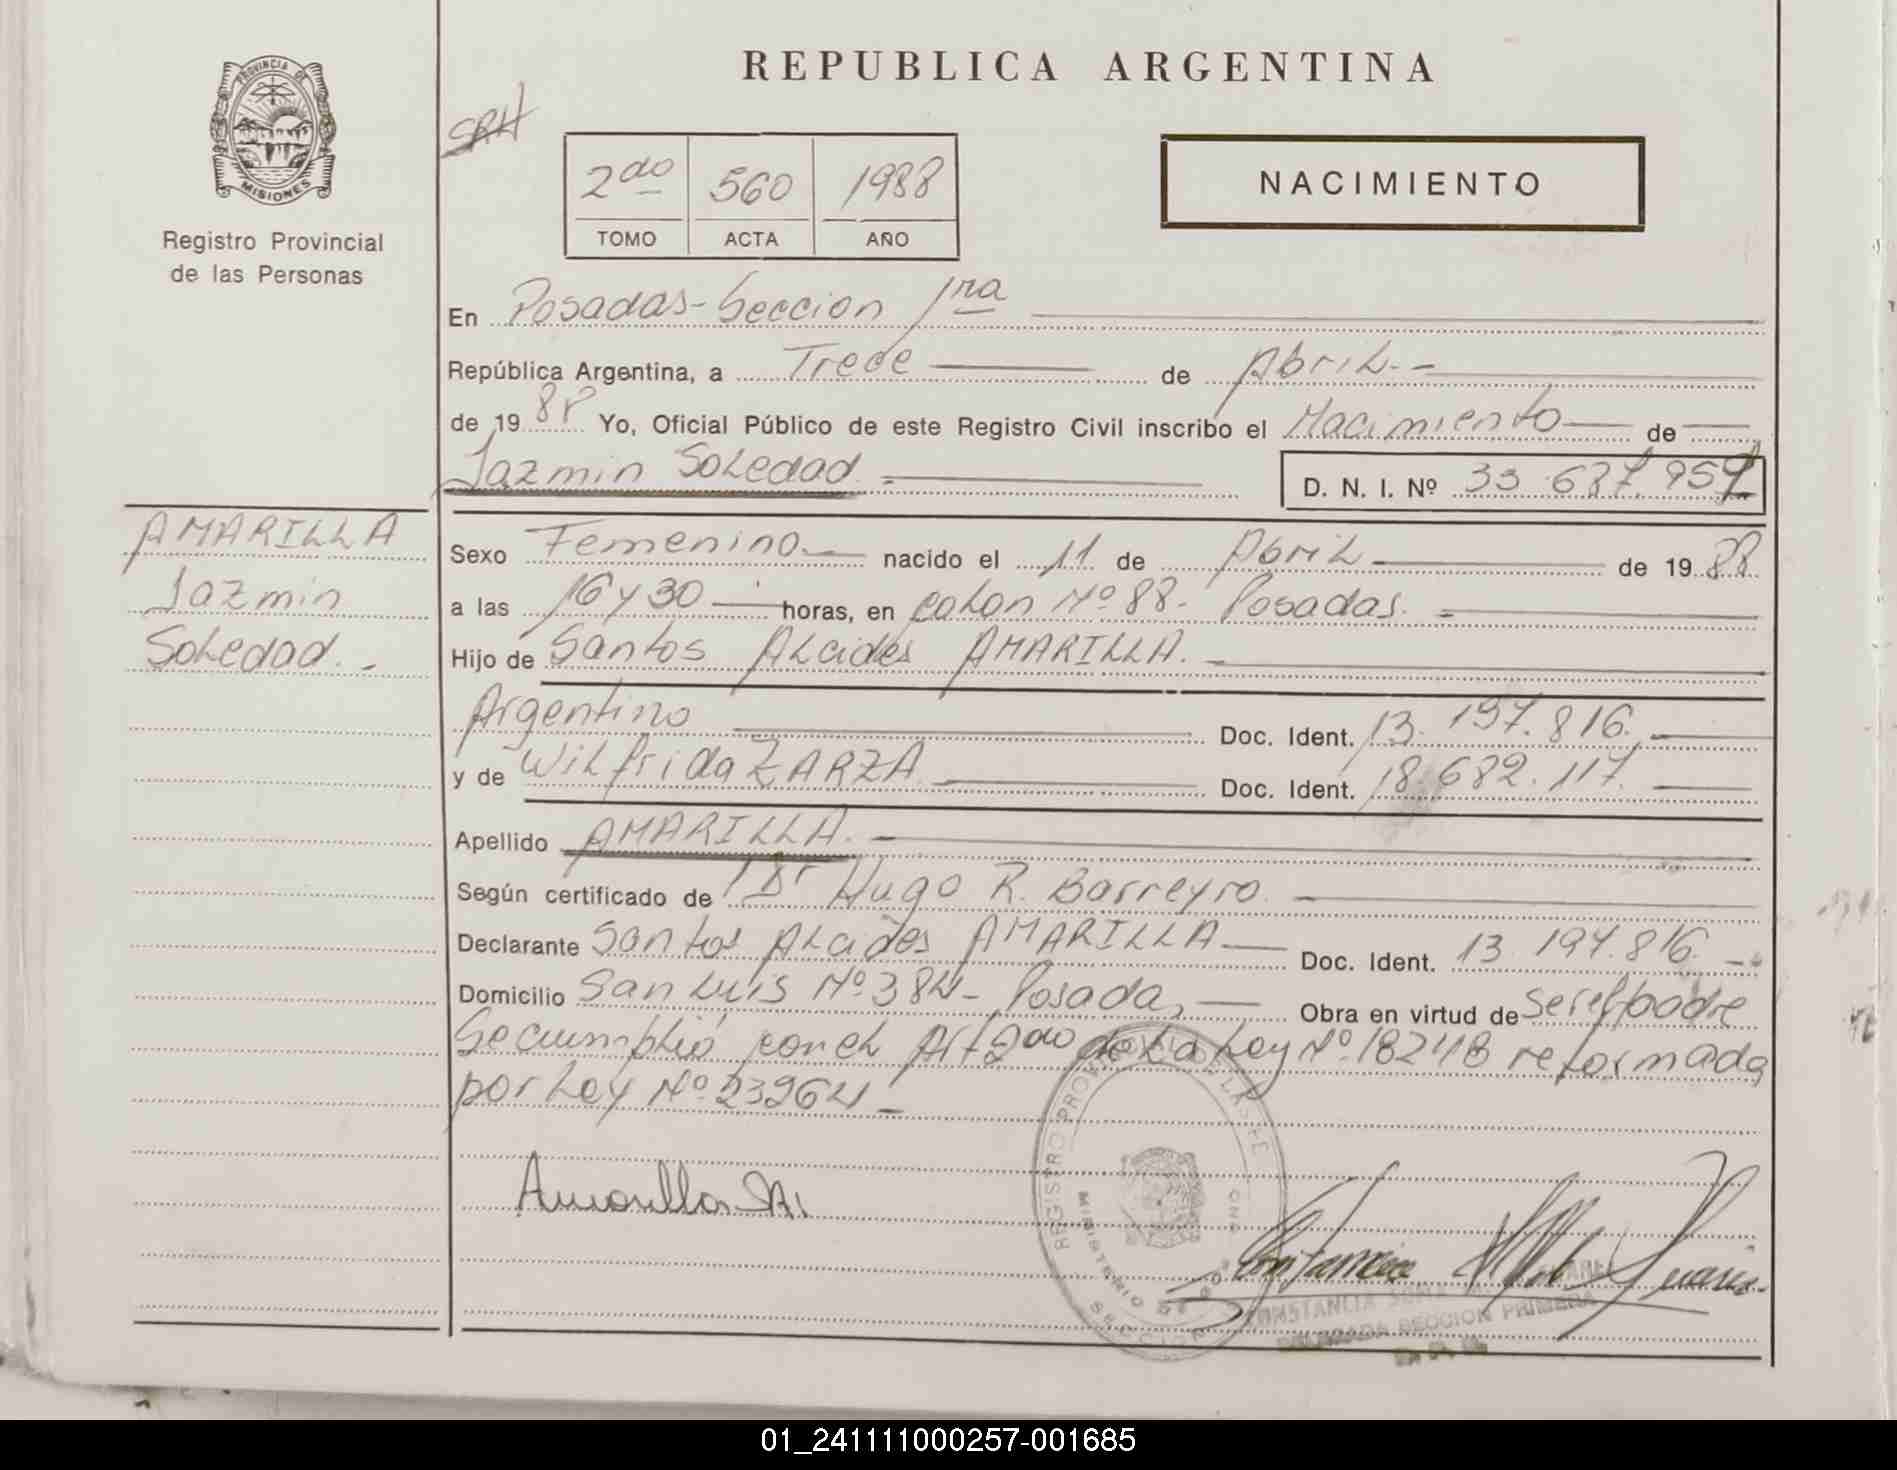 REPUBLICA ARGENTINA
PROVINCIA DE
MISIONES
Registro Provincial
de las Personas
SRH
2do 560 1988
TOMO ACTA AÑO
NACIMIENTO
En Posadas-Seccion 1ra
República Argentina, a Trece de Abril.-
de 1988 Yo, Oficial Público de este Registro Civil inscribo el Nacimiento de
Jazmin Soledad.- D. N. I. Nº 33.687.957
AMARILLA
Jazmin
Soledad.-
Sexo Femenino nacido el 11 de Abril de 1988
a las 16 y 30 horas, en Colon Nº 88- Posadas.-
Hijo de Santos Alcides AMARILLA.
Argentino Doc. Ident. 13.197.816.
y de Wilfrida ZARZA Doc. Ident. 18.682.117.
Apellido AMARILLA.-
Según certificado de Dr Hugo R. Barreyro.
Declarante Santos Alcides AMARILLA Doc. Ident. 13.197.816.-
Domicilio San Luis Nº 384- Posadas Obra en virtud de ser el padre
Se cumplió con el Art 2do de la Ley Nº 18248 reformada
por Ley Nº 23264-
REGISTRO PROVINCIAL DE LAS
MINISTERIO DE
SECCION
Amarilla
CONSTANCIA
DELEGADA SECCION PRIMERA
01_241111000257-001685